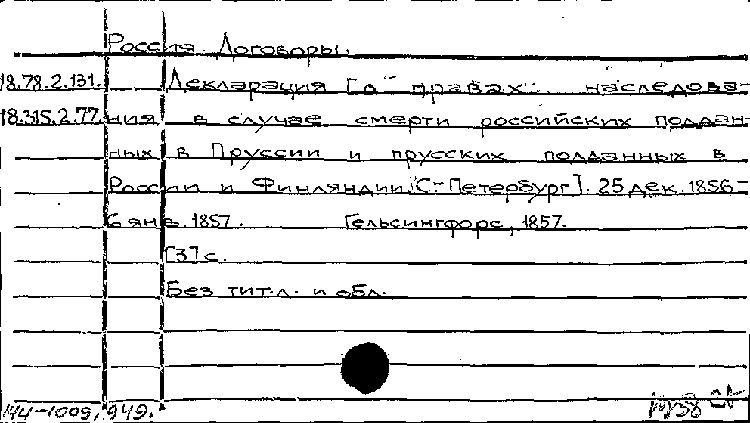 Россия. Договоры.
18.78.2.131. Декларация [о правах наследова-
18.315.2.77. ния в случае смерти российских поддан-
ных в Пруссии и прусских подданных в
России и Финляндии. С.-Петербург]. 25 дек. 1856-
6 янв. 1857. Гельсингфорс, 1857.
[3] с.
Без тит. л. и обл.
144-1009, 949.